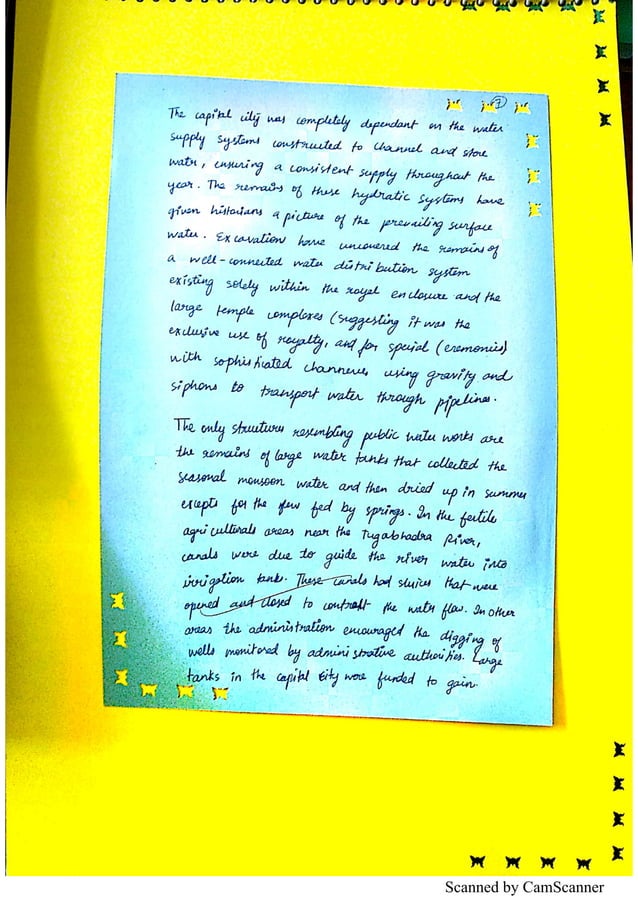 7
The capital city was completely dependant on the water
supply systems constructed to channel and store
water, ensuring a consistent supply throughout the
year. The remains of these hydratic systems have
given historians a picture of the prevailing surface
water. Excavation have uncovered the remains of
a well-connected water distribution system
existing solely within the royal enclosure and the
large temple complexes (suggesting it was the
exclusive use of royalty, and for special ceremonies)
with sophisticated channels using gravity and
siphons to transport water through pipelines.
The only structures resembling public water works are
the remains of large water tanks that collected the
seasonal monsoon water and then dried up in summer
excepts for the few fed by springs. In the fertile
agriculturals areas near the Tugabhadra River,
canals were due to guide the river water into
irrigation tanks. These canals had sluices that were
opened and closed to the water flow. In other
areas the administration encouraged the digging of
wells monitored by administrative authorities. Large
tanks in the capital city were funded to gain
Scanned by CamScanner